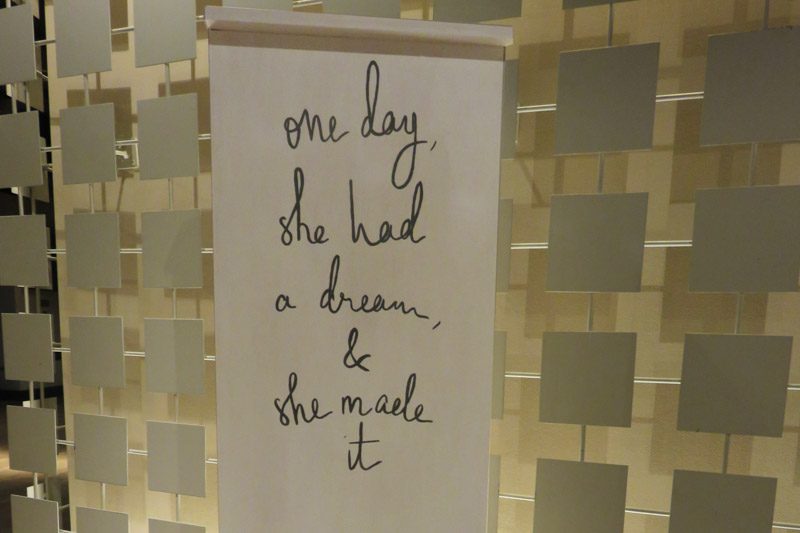 one day,
she had
a dream,
&
she made
it